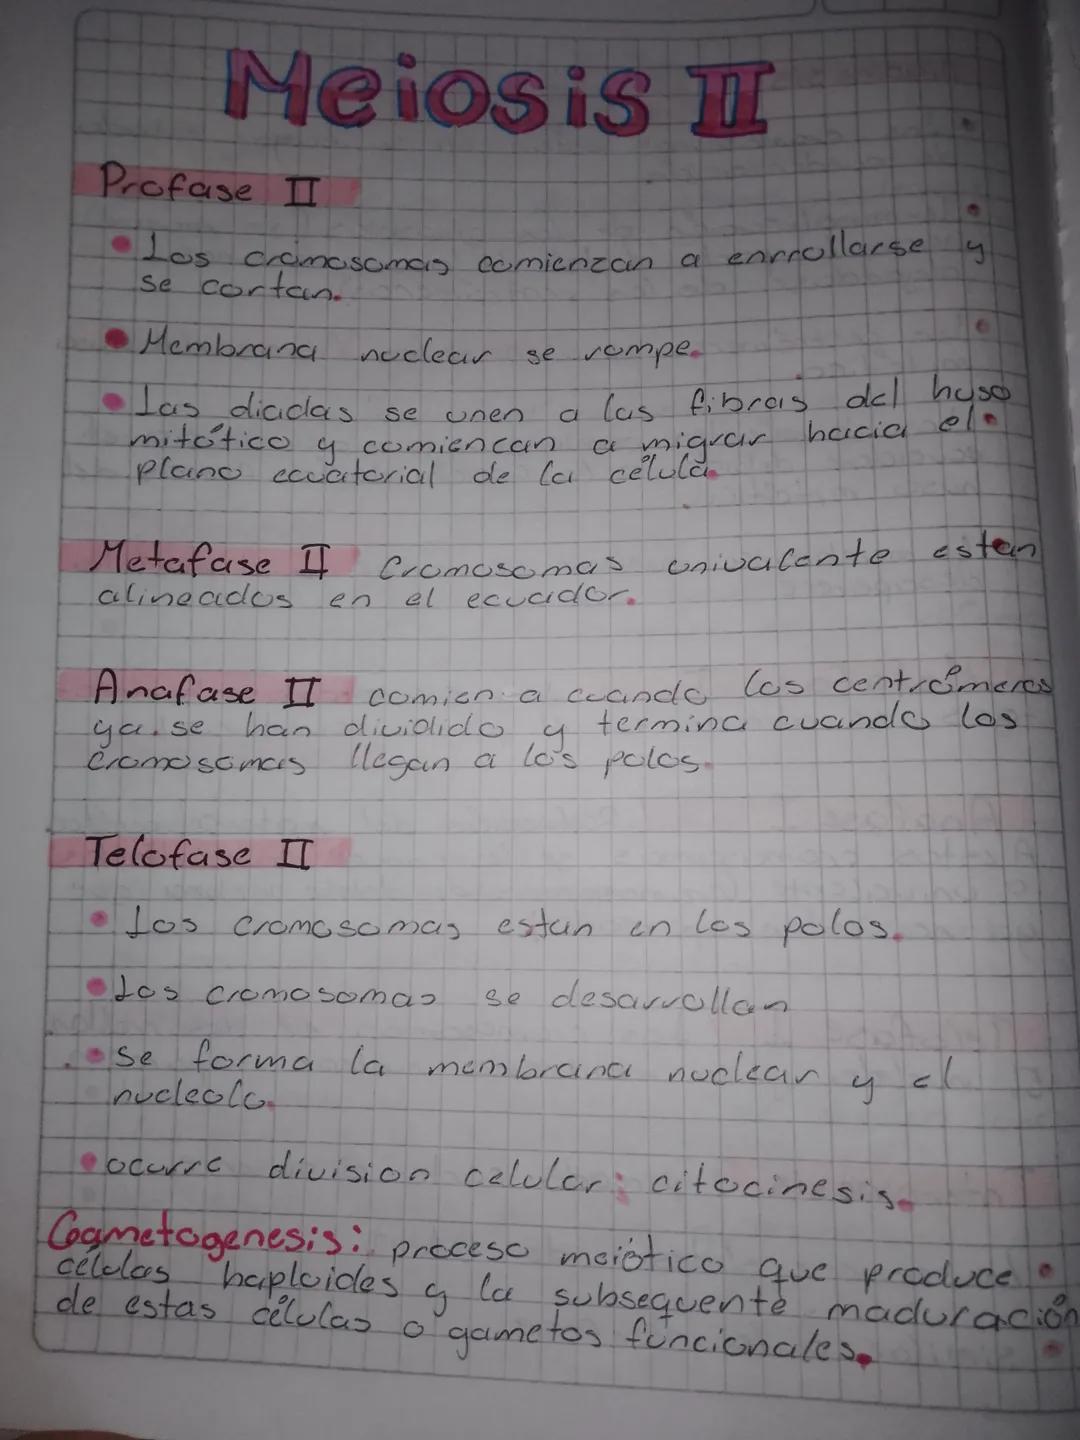 Meiosis II
Profase II
• Los cromosomas comienzan a enrrollarse y
se cortan.
• Membrana nuclear se rompe.
• Las diadas se unen a las fibras del huso
mitótico y comiencan a migrar hacia el
plano ecuatorial de la célula.
Metafase II Cromosomas univalente estan
alineados en el ecuador.
Anafase II comien a cuando los centrómeros
ya se han dividido y termina cuando los
cromosomas llegan a los polos.
Telofase II
• Los cromosomas estan en los polos.
• Los cromosomas se desarrollan
• Se forma la membrana nuclear y el
nucleolo.
• ocurre division celular: citocinesis.
Gametogenesis: proceso meiótico que produce
células haploides y la subsequente maduración
de estas células o gametos funcionales.